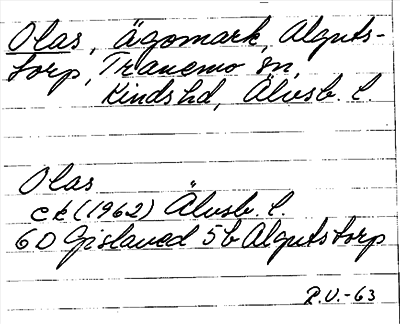 Olas, Ägomark, Alguts-
torp, Tranemo sn,
Kinds hd, Älvsb. l.
Olas
ek (1962) Älvsb. l.
6D Gislaved 5b Algutstorp
P.U.-63